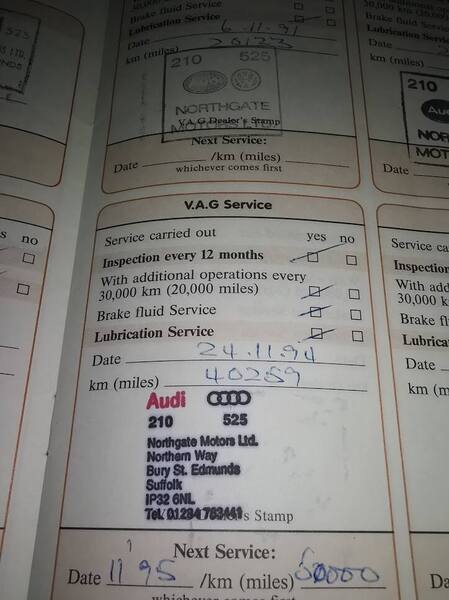 30,000 km (20,000 miles)
Brake fluid Service
Lubrication Service 6.11.91
Date
km (miles)
210 525
NORTHGATE
V.A.G Dealer's Stamp
Next Service:
Date /km (miles)
whichever comes first
V.A.G Service
Service carried out yes no
Inspection every 12 months
With additional operations every
30,000 km (20,000 miles)
Brake fluid Service
Lubrication Service
Date 24.11.94
km (miles) 40259
Audi
210 525
Northgate Motors Ltd.
Northern Way
Bury St. Edmunds
Suffolk
IP32 6NL
Tel. 01284 763441
's Stamp
Next Service:
Date 11 95 /km (miles) 60000
whichever comes first
525
LTD.
no
s no
Brake fluid Service
Lubrication
Date
km (miles)
210
Audi
NOR
MOT
Date
Service ca
Inspection
With add
30,000 k
Brake fl
Lubrica
Date
km (m